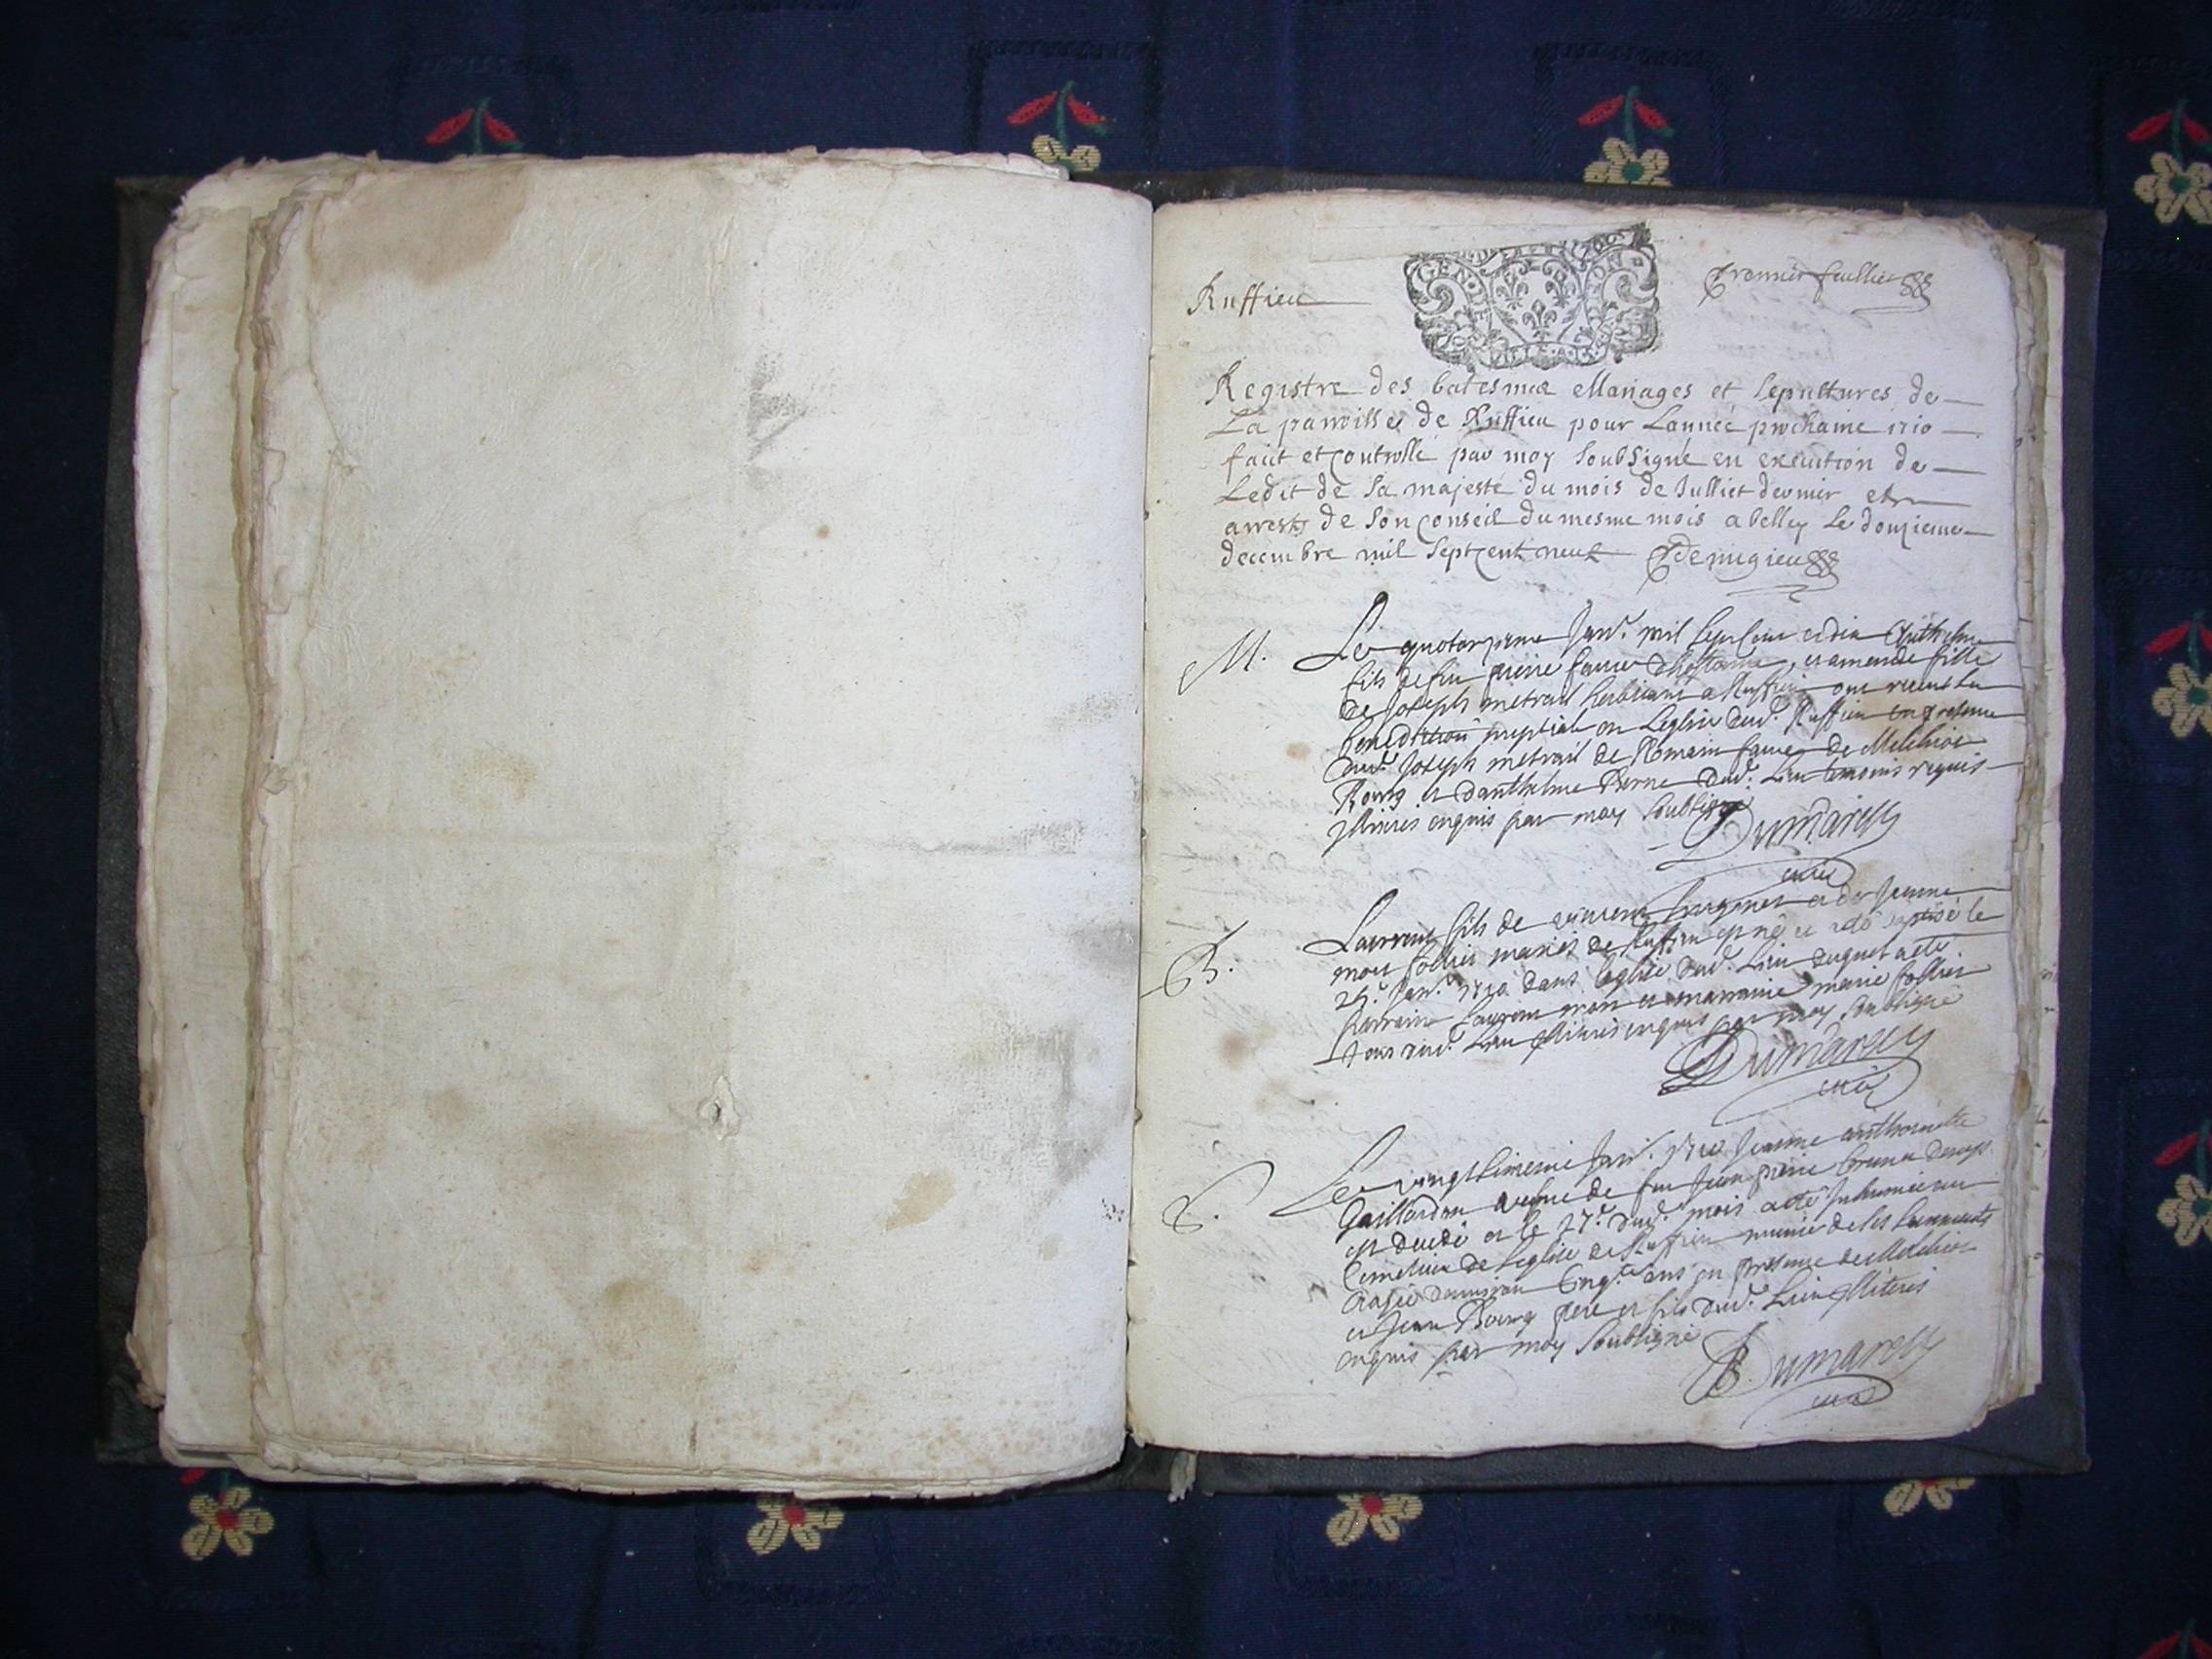 Ruffieu
premier feulliet
GEN DE
Registre des batesmes Mariages et sepultures de
La parroisse de Ruffieu pour Lannée prochaine 1710
faict et controllé par moy soubsigné en execution de
Ledit de sa majesté du mois de Julliet dernier et
arrests de son conseil du mesme mois a belley le douzieme
decembre mil sept cent neuf Demigieu
M.
Le quatorzieme Janv. mil sept cent et dix Anthelme
fils de feu pierre favre et amende fille
de Joseph metrail habitans a Ruffieu ont receu la
benediction nuptiale en Leglise dud. Ruffieu en presence
dud. Joseph metrail de Romain favre de Melchior
Bourg et danthelme Berne dud. Lieu temoins requis
illiteres enquis par moy soubsigné
Dumarest
curé
B.
Laurent fils de vincent et de Jeanne
mariés de Ruffieu est né et a été baptisé le
25. Janv. 1710 dans leglise dud. Lieu duquel a esté
parrain Laurent et marraine marie
tous dud. Lieu illiteres enquis par moy soubsigné
Dumarest
curé
S.
Le vingt sixieme Janv. 1710 Jeanne anthoinette
Gaillardon vefve de feu Jean pierre brunet
est decedé et le 27. dud. mois a esté Inhumée au
Cimetiere de Leglise de Ruffieu munie de ses sacrements
Eagée denviron ans en presence de Melchior
et Jean Bourg pere et fils dud. Lieu illiteres
enquis par moy soubsigné
Dumarest
curé